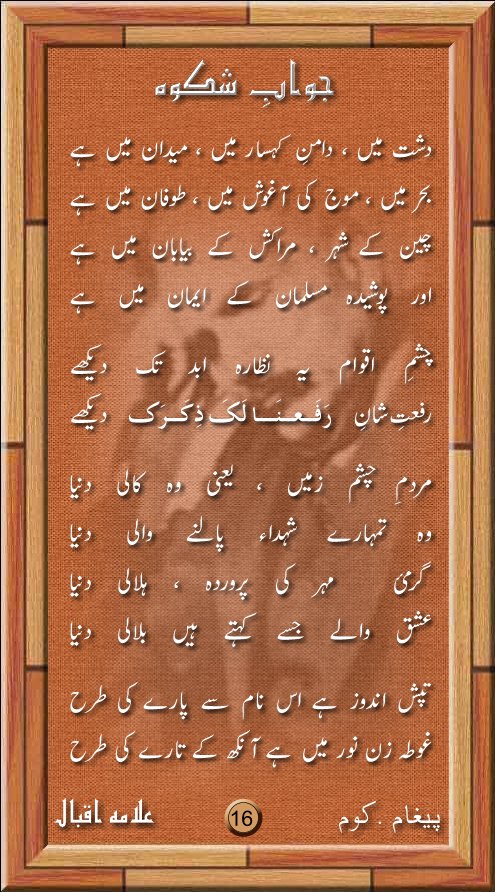 جوابِ شکوہ
دشت میں ، دامنِ کہسار میں ، میدان میں ہے
بحر میں ، موج کی آغوش میں ، طوفان میں ہے
چین کے شہر ، مراکش کے بیاباں میں ہے
اور پوشیدہ مسلمان کے ایمان میں ہے
چشمِ اقوام یہ نظارہ ابد تک دیکھے
رفعتِ شانِ رَفَعنَا لَکَ ذِکرَک دیکھے
مردمِ چشم زمیں ، یعنی وہ کالی دنیا
وہ تمہارے شہداء پالنے والی دنیا
گرمیٔ مہر کی پروردہ ، ہلالی دنیا
عشق والے جسے کہتے ہیں بلالی دنیا
تپش اندوز ہے اس نام سے پارے کی طرح
غوطہ زن نور میں ہے آنکھ کے تارے کی طرح
پیغام . کوم 16 علامہ اقبال